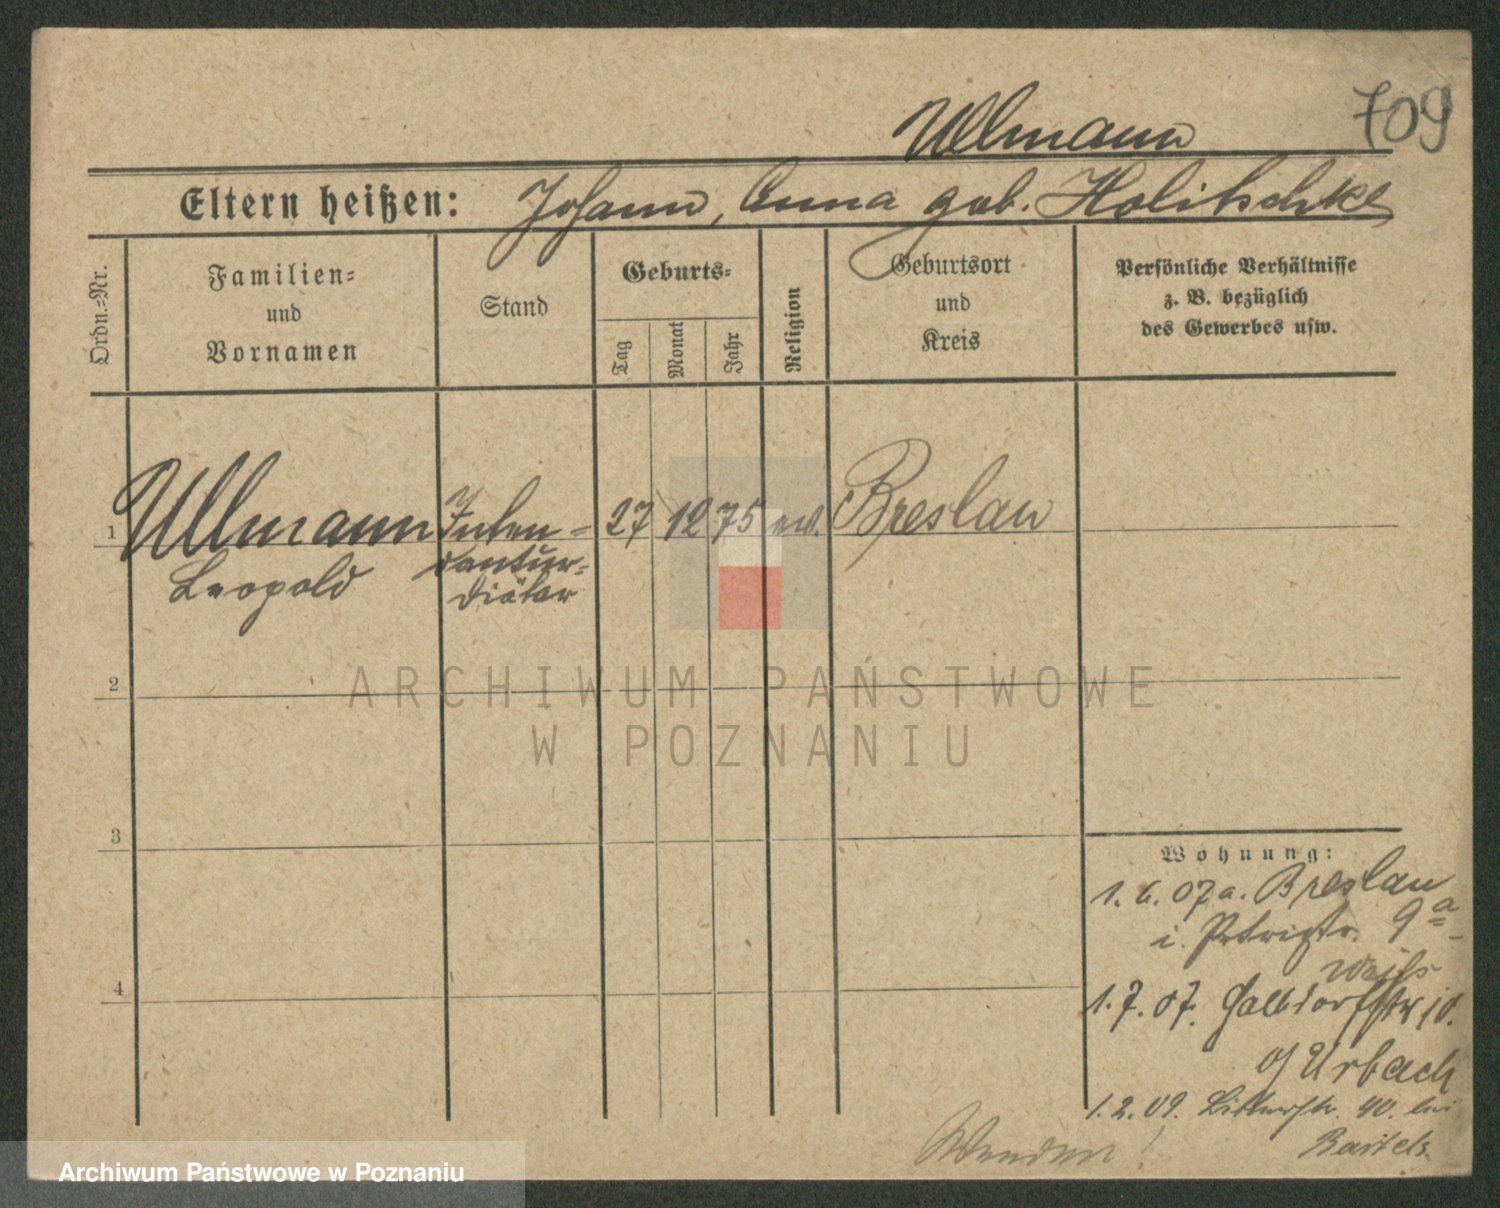 709
Ullmann
Eltern heißen: Johann, Anna geb. Holitschke
Ordn.=Nr.
Familien=
und
Vornamen
Stand
Geburts=
Tag
Monat
Jahr
Religion
Geburtsort
und
Kreis
Persönliche Verhältnisse
z. B. bezüglich
des Gewerbes usw.
1 Ullmann Inten= 27 12 75 ev. Breslau
Leopold
dantur=
diätar
2
3
4
Wohnung:
1. 6. 07 a. Breslau
i. 9a
1. 7. 07. 10.
Urbach
1. 2. 09. 40. bei
Bartels.
Wenden!
ARCHIWUM PAŃSTWOWE
W POZNANIU
Archiwum Państwowe w Poznaniu